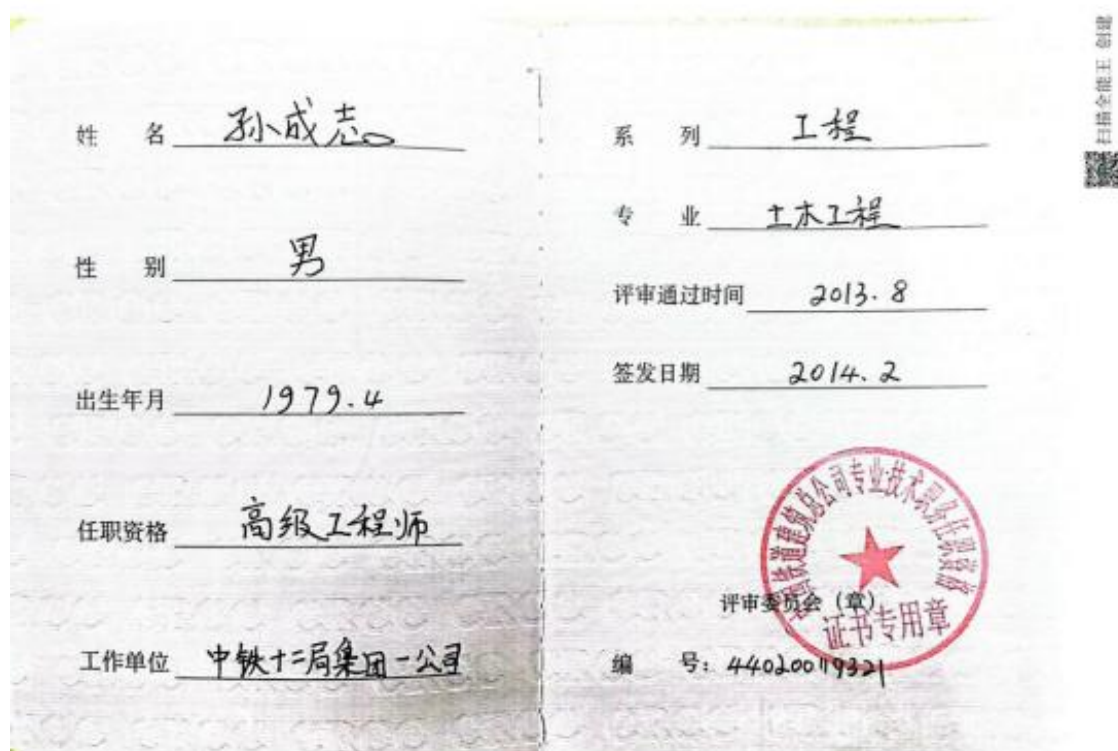 姓 名 孙成志
性 别 男
出生年月 1979.4
任职资格 高级工程师
工作单位 中铁十二局集团一公司
系 列 工程
专 业 土木工程
评审通过时间 2013.8
签发日期 2014.2
中国铁道建筑总公司专业技术职务任职资格
评审委员会（章）
证书专用章
编 号：44020019321
扫描全能王 创建